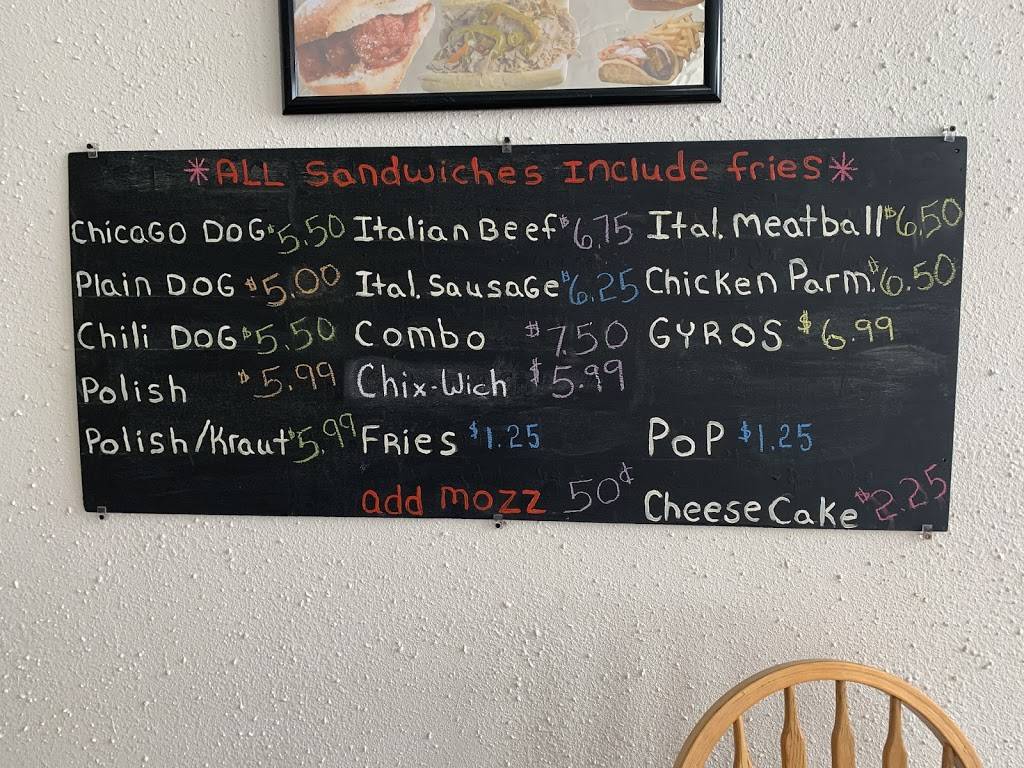 *ALL Sandwiches Include fries*
Chicago DoG $5.50 Italian Beef $6.75 Ital. Meatball $6.50
Plain DOG $5.00 Ital. Sausage $6.25 Chicken Parm. $6.50
Chili DoG $5.50 Combo $7.50 GYROS $6.99
Polish $5.99 Chix-Wich $5.99
Polish/Kraut $5.99 Fries $1.25 PoP $1.25
add mozz 50¢ Cheese Cake $2.25